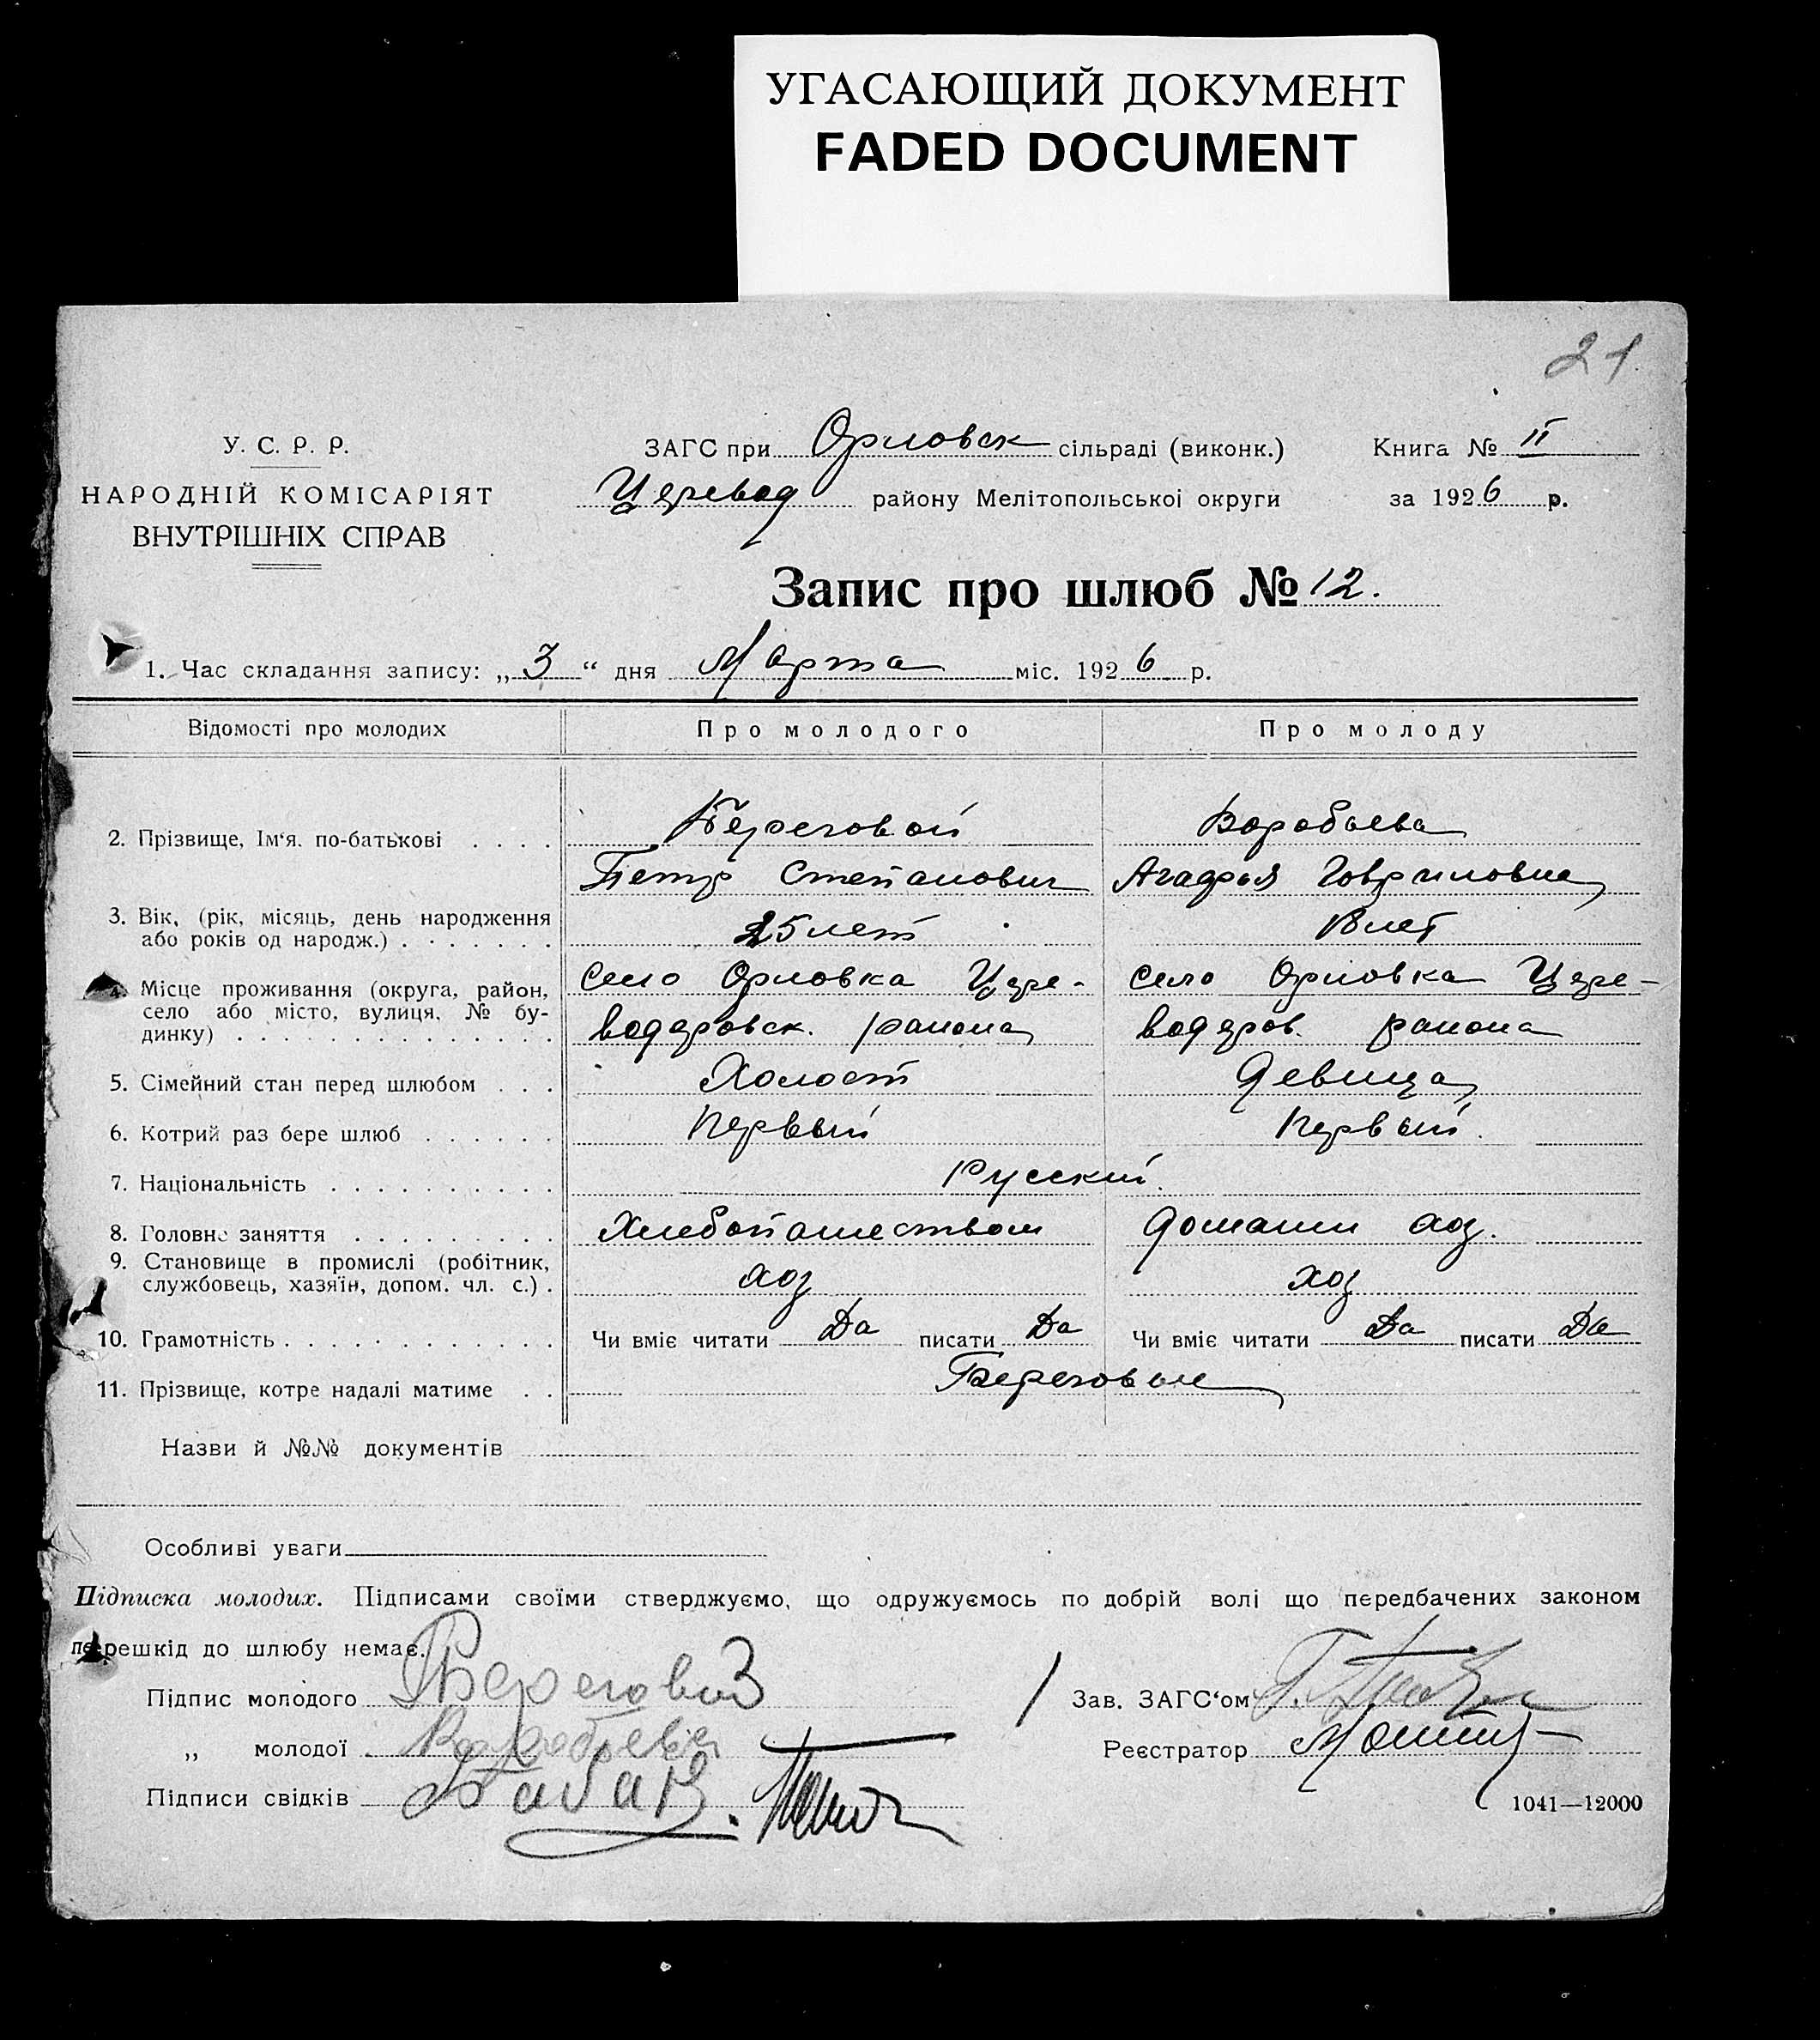 УГАСАЮЩИЙ ДОКУМЕНТ
FADED DOCUMENT
21
У. С. Р. Р.
НАРОДНІЙ КОМІСАРІЯТ
ВНУТРІШНІХ СПРАВ
ЗАГС при Орловск сільраді (виконк.)
Церевод району Мелітопольської округи
Книга № II
за 1926 р.
Запис про шлюб № 12.
1. Час складання запису: „3“ дня Марта міс. 1926 р.
Відомості про молодих Про молодого Про молоду
2. Прізвище, Ім‘я. по-батькові . . . . Береговой Воробьева
Петр Степанович Агафья Говриловна
3. Вік, (рік, місяць, день народження
або років од народж.) . . . . . . . 25 лет 18 лет
4. Місце проживання (округа, район,
село або місто, вулиця, № бу-
динку) . . . . . . . . . . . . . .
село Орловка Цере- село Орловка Цере-
водеровск. раиона водеров. раиона
5. Сімейний стан перед шлюбом . . . Холост Девица
6. Котрий раз бере шлюб . . . . . . Первый Первый.
7. Національність . . . . . . . . . . Русский.
8. Головне заняття . . . . . . . . . Хлебопашеством домашн хоз.
9. Становище в промислі (робітник,
службовець, хазяїн, допом. чл. с.) . хоз хоз
10. Грамотність . . . . . . . . . . . . Чи вміє читати Да писати Да Чи вміє читати Да писати Да
11. Прізвище, котре надалі матиме . . Береговые
Назви й №№ документів
Особливі уваги
Підписка молодих. Підписами своїми стверджуємо, що одружуємось по добрій волі що передбачених законом
перешкід до шлюбу немає.
Підпис молодого Берегово
„ молодої Воробьева
Підписи свідків
Зав. ЗАГС‘ом
Реєстратор
1041—12000